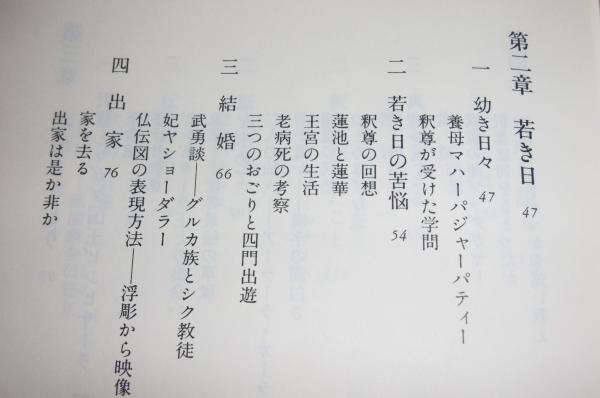 第二章 若き日 47
一 幼き日々 47
養母マハーパジャーパティー
釈尊が受けた学問
二 若き日の苦悩 54
釈尊の回想
蓮池と蓮華
王宮の生活
老病死の考察
三つのおごりと四門出遊
三 結婚 66
武勇談——グルカ族とシク教徒
妃ヤショーダラー
仏伝図の表現方法——浮彫から映像
四 出家 76
家を去る
出家は是か非か